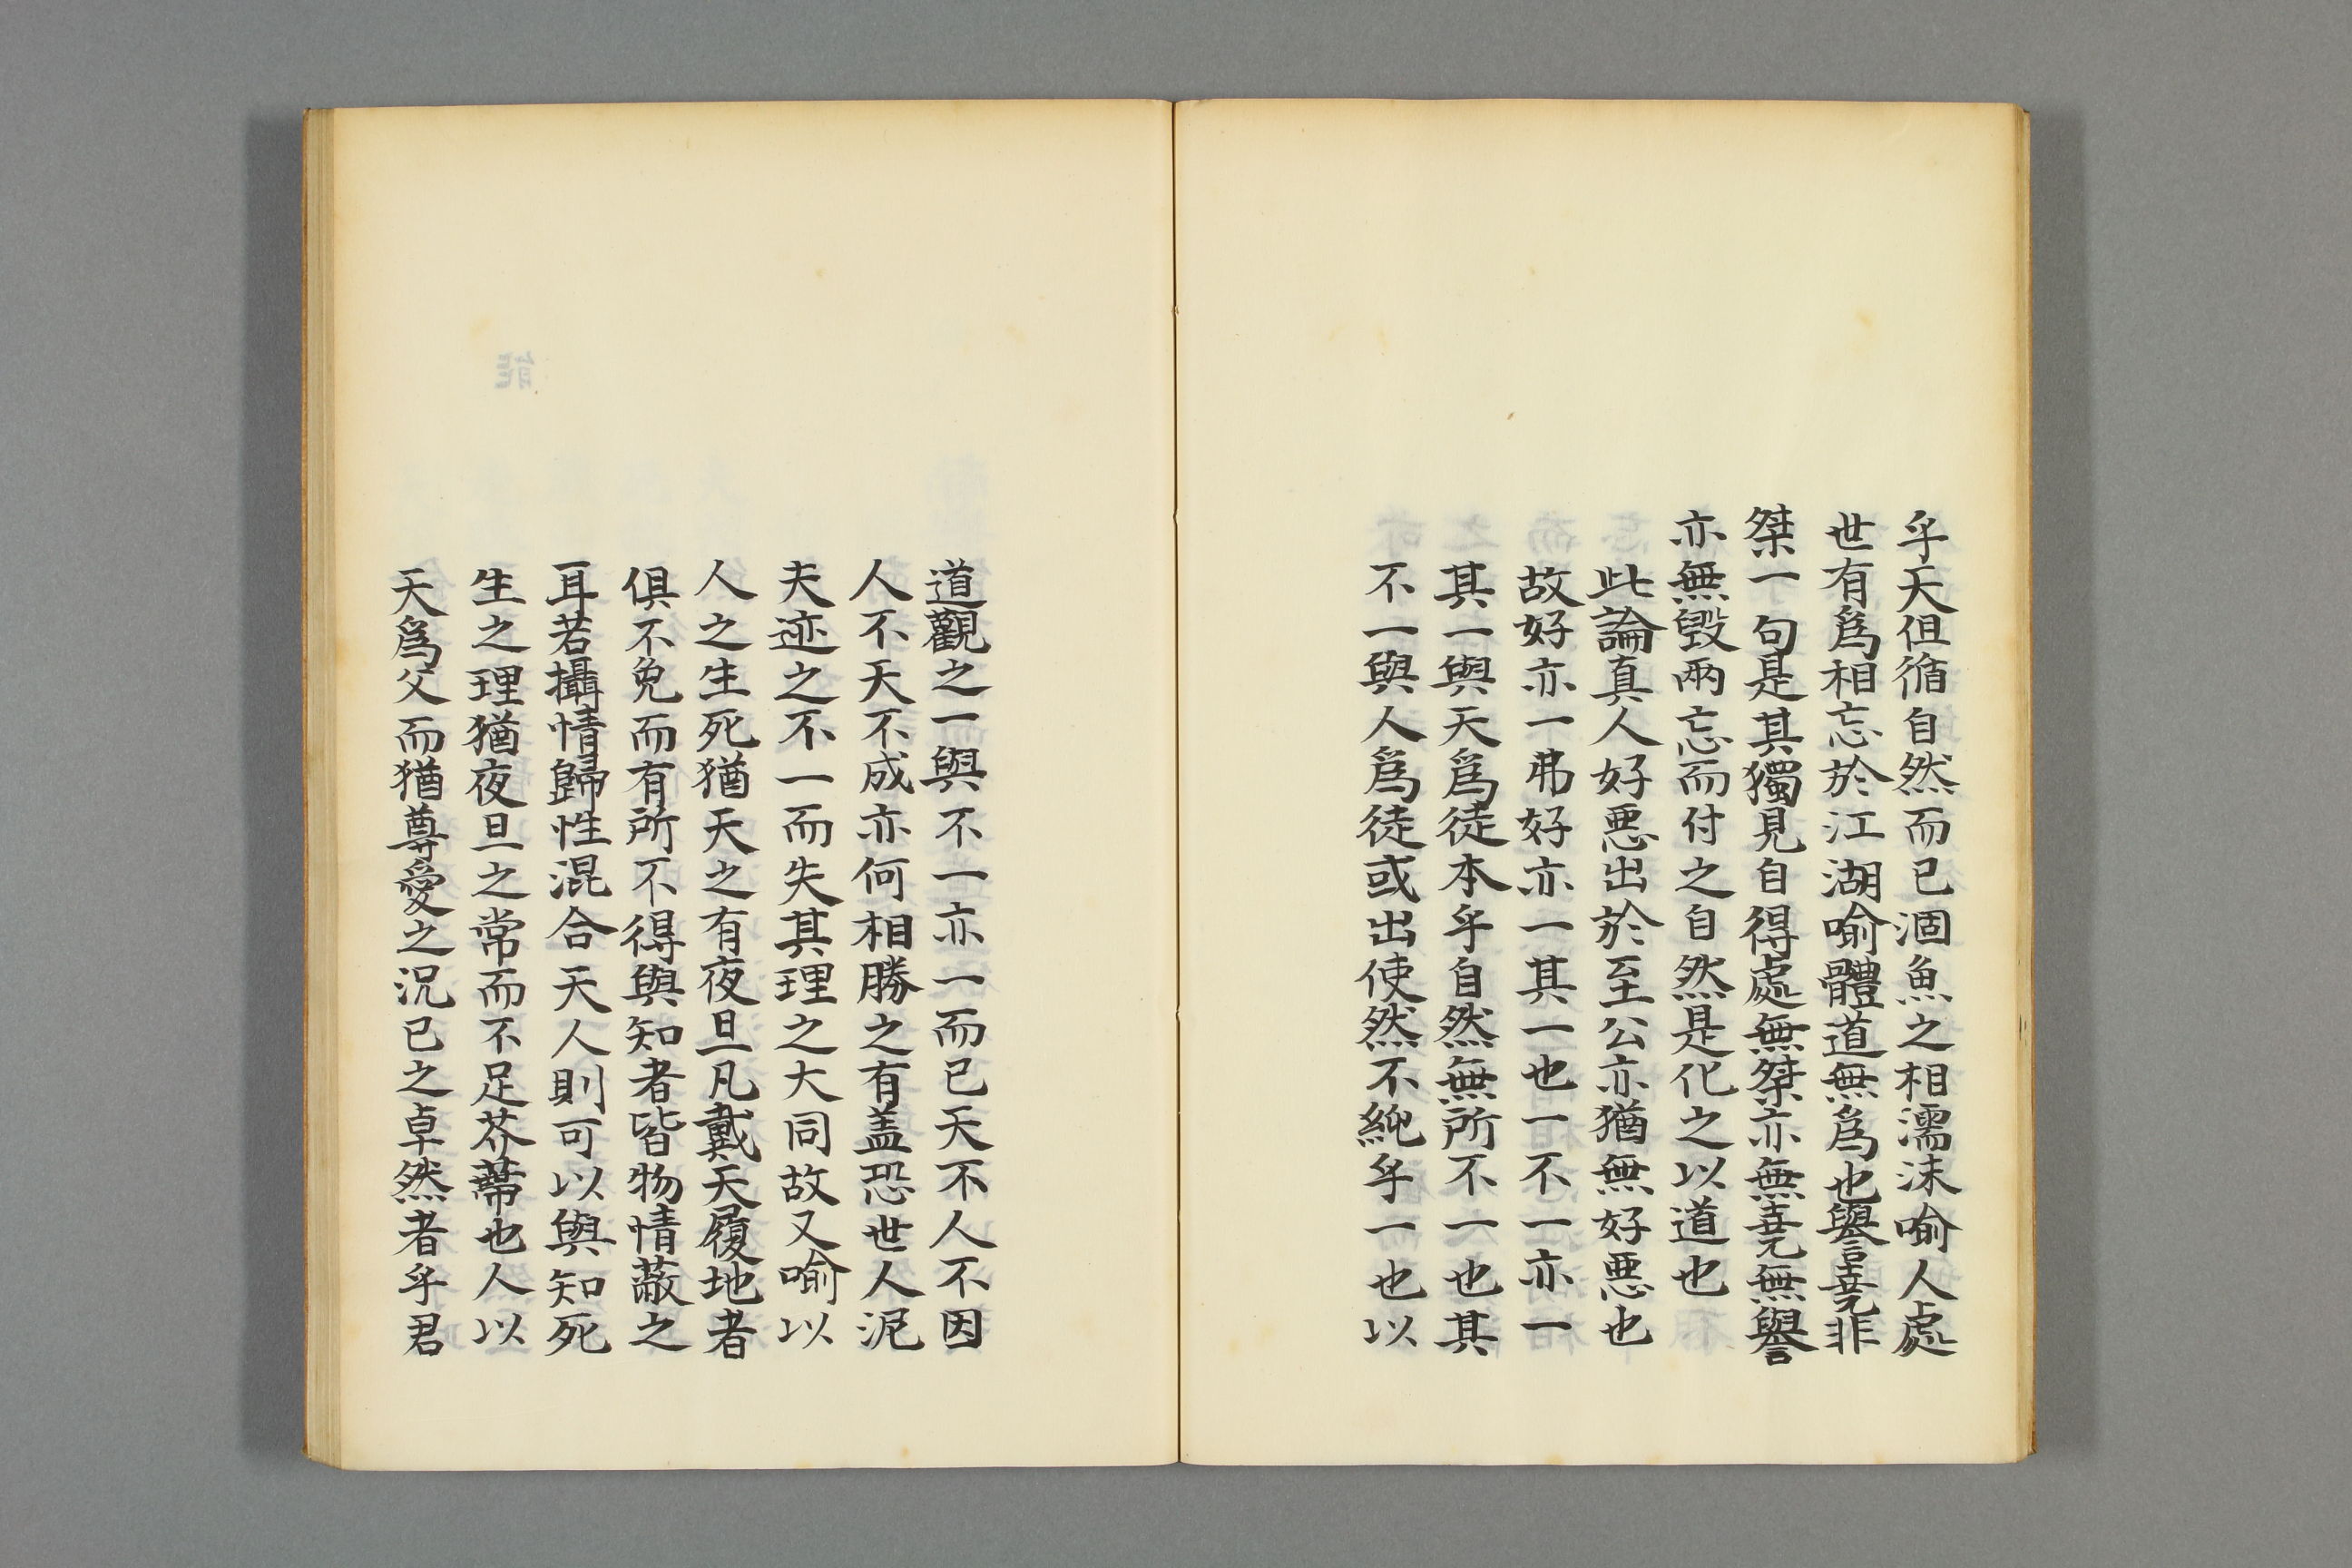 乎天但循自然而已涸魚之相濡沫喻人處
世有爲相忘於江湖喻體道無爲也譽堯非
桀一句是其獨見自得處無桀亦無堯無譽
亦無毀兩忘而付之自然是化之以道也
此論真人好惡出於至公亦猶無好惡也
故好亦一弗好亦一其一也一不一亦一
其一與天爲徒本乎自然無所不一也其
不一與人爲徒或出使然不純乎一也以
道觀之一與不一亦一而已天不人不因
人不天不成亦何相勝之有盖恐世人泥
夫迹之不一而失其理之大同故又喻以
人之生死猶天之有夜旦凡戴天履地者
俱不免而有所不得與知者皆物情蔽之
耳若攝情歸性混合天人則可以與知死
生之理猶夜旦之常而不足芥蔕也人以
天爲父而猶尊愛之況已之卓然者乎君